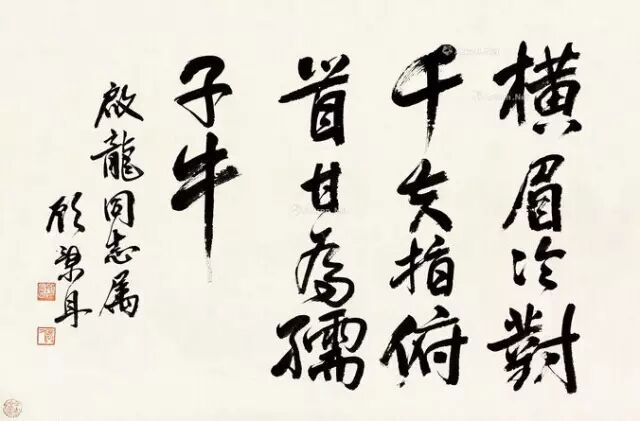 横眉冷對
千夫指俯
首甘為孺
子牛
啟龍同志屬